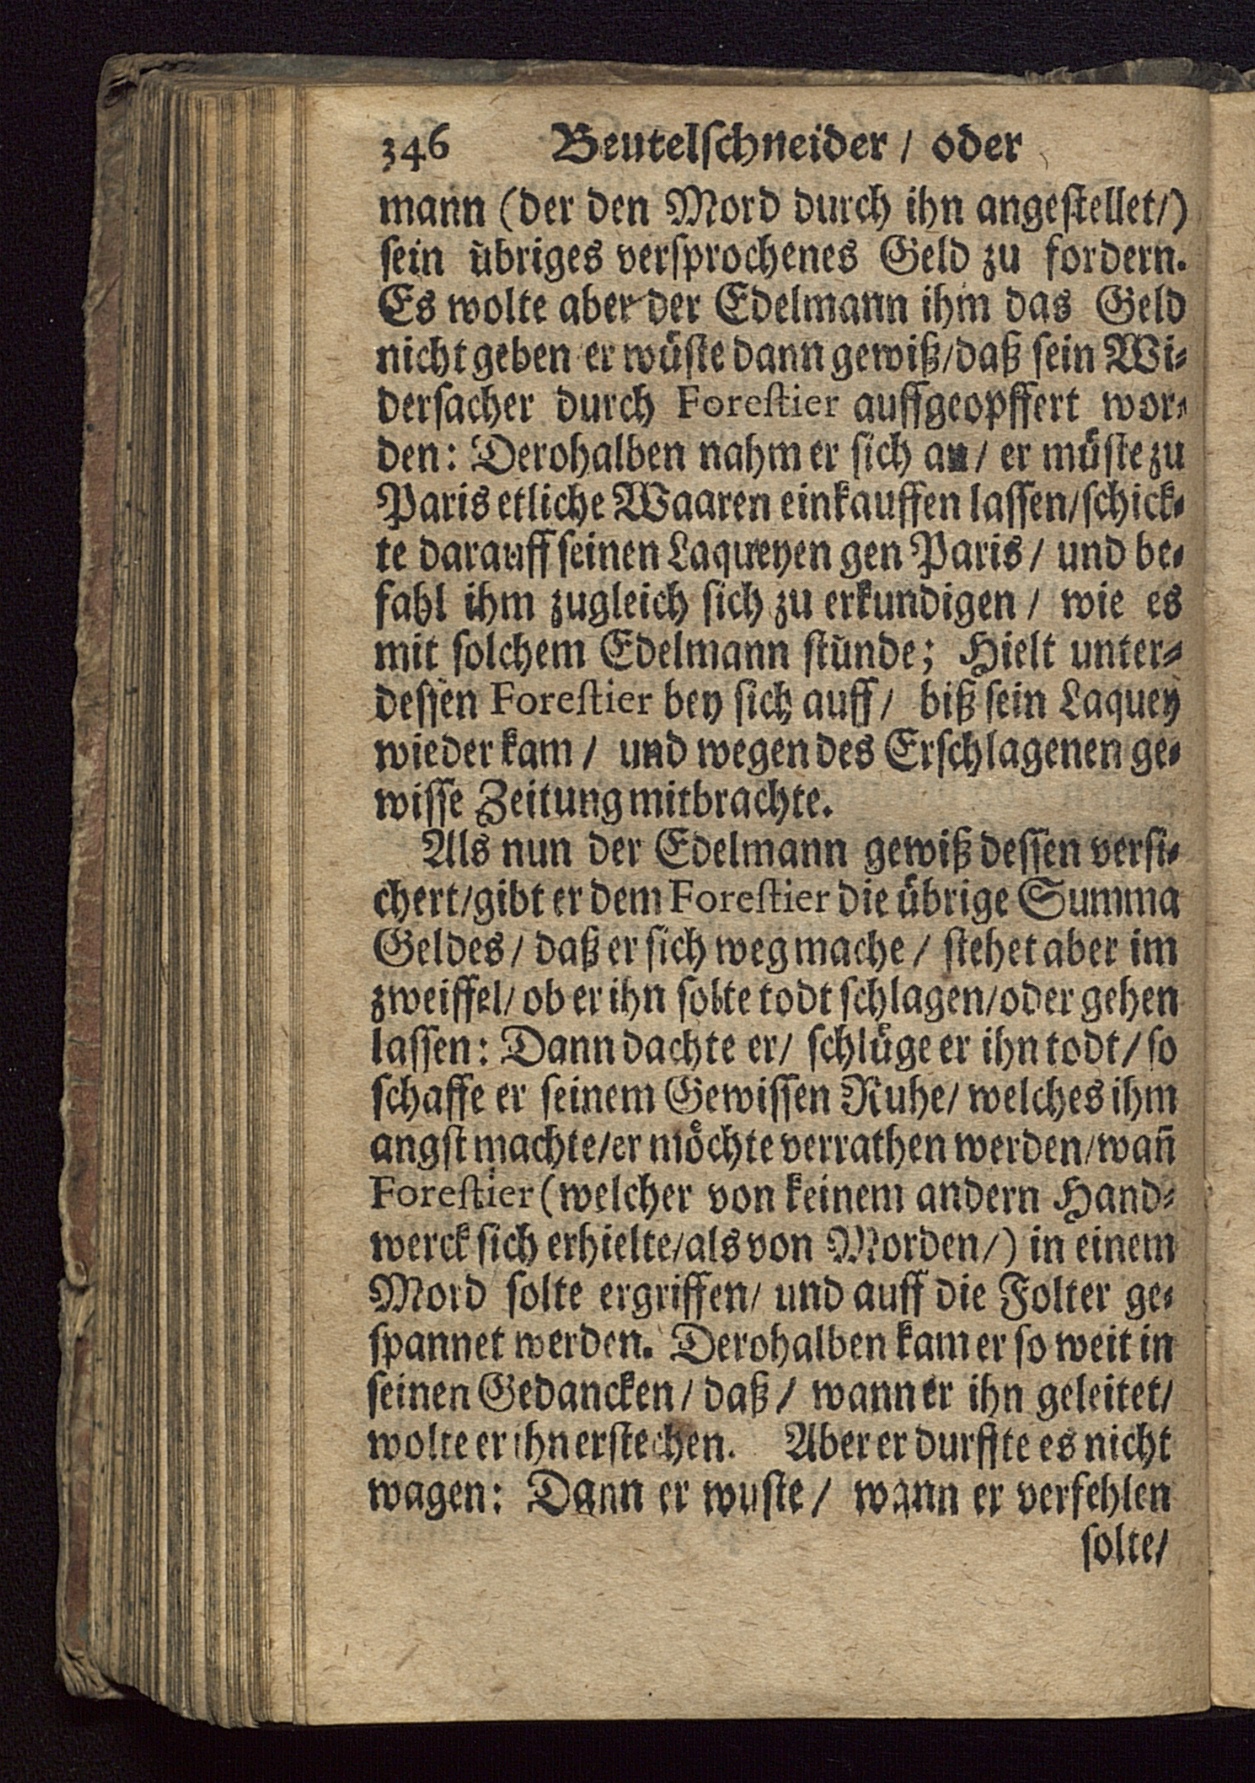 346 Beutelschneider / oder
mann (der den Mord durch ihn angestellet/)
sein übriges versprochenes Geld zu fordern.
Es wolte aber der Edelmann ihm das Geld
nicht geben er wüste dann gewiß/daß sein Wi-
dersacher durch Forestier auffgeopffert wor-
den: Derohalben nahm er sich an/ er müste zu
Paris etliche Waaren einkauffen lassen/schick-
te darauff seinen Laqueyen gen Paris/ und be-
fahl ihm zugleich sich zu erkundigen/ wie es
mit solchem Edelmann stünde; Hielt unter-
dessen Forestier bey sich auff/ biß sein Laquey
wieder kam/ und wegen des Erschlagenen ge-
wisse Zeitung mitbrachte.
Als nun der Edelmann gewiß dessen versi-
chert/gibt er dem Forestier die übrige Summa
Geldes/ daß er sich weg mache/ stehet aber im
zweiffel/ ob er ihn solte todt schlagen/oder gehen
lassen: Dann dachte er/ schlüge er ihn todt/ so
schaffe er seinem Gewissen Ruhe/ welches ihm
angst machte/er möchte verrathen werden/wañ
Forestier (welcher von keinem andern Hand-
werck sich erhielte/als von Morden/) in einem
Mord solte ergriffen/ und auff die Folter ge-
spannet werden. Derohalben kam er so weit in
seinen Gedancken/ daß/ wann er ihn geleitet/
wolte er ihn erstechen. Aber er durffte es nicht
wagen: Dann er wuste/ wann er verfehlen
solte/